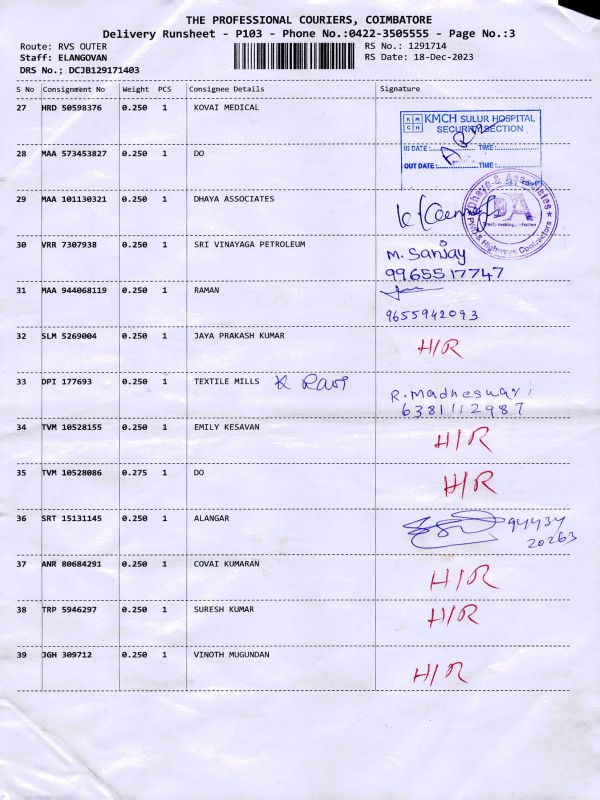 THE PROFESSIONAL COURIERS, COIMBATORE
Delivery Runsheet - P103 - Phone No.:0422-3505555 - Page No.:3
Route: RVS OUTER RS No.: 1291714
Staff: ELANGOVAN RS Date: 18-Dec-2023
DRS No.; DCJB129171403
S No Consignment No Weight PCS Consignee Details Signature
27 HRD 50598376 0.250 1 KOVAI MEDICAL
KMCH SULUR HOSPITAL
SECURITY SECTION
IN DATE : TIME :
28 MAA 573453827 0.250 1 DO
OUT DATE : TIME :
29 MAA 101130321 0.250 1 DHAYA ASSOCIATES
Dhaya & Associates
DA
PWD & Highways Contractors
30 VRR 7307938 0.250 1 SRI VINAYAGA PETROLEUM M. Sanjay
9965517747
31 MAA 944068119 0.250 1 RAMAN
9655942093
32 SLM 5269004 0.250 1 JAYA PRAKASH KUMAR H/R
33 DPI 177693 0.250 1 TEXTILE MILLS K Ravi R. Madheswari
6381112987
34 TVM 10528155 0.250 1 EMILY KESAVAN H/R
35 TVM 10528086 0.275 1 DO H/R
36 SRT 15131145 0.250 1 ALANGAR 94434
20263
37 ANR 80684291 0.250 1 COVAI KUMARAN H/R
38 TRP 5946297 0.250 1 SURESH KUMAR H/R
39 JGH 309712 0.250 1 VINOTH MUGUNDAN H/R